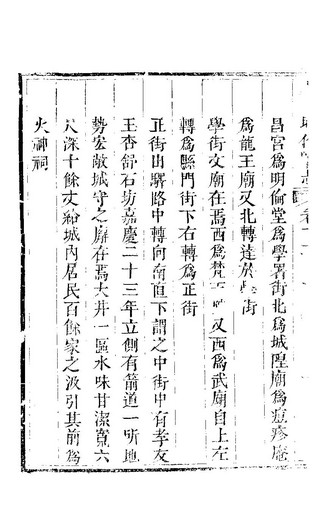 昌宮爲明倫堂爲學署街北爲城隍廟爲痘疹庵
爲龍王廟又北轉達於學街
學街文廟在焉西爲梵 又西爲武廟自上左
轉爲縣門街下右轉爲正街
正街出驛路中轉向南直下謂之中街中有孝友
王杏舒石坊嘉慶二十三年立側有箭道一所地
勢宏敞城守之廨在焉大井一區水味甘潔寬六
尺深十餘丈給城內居民百餘家之汲引其前爲
火神祠